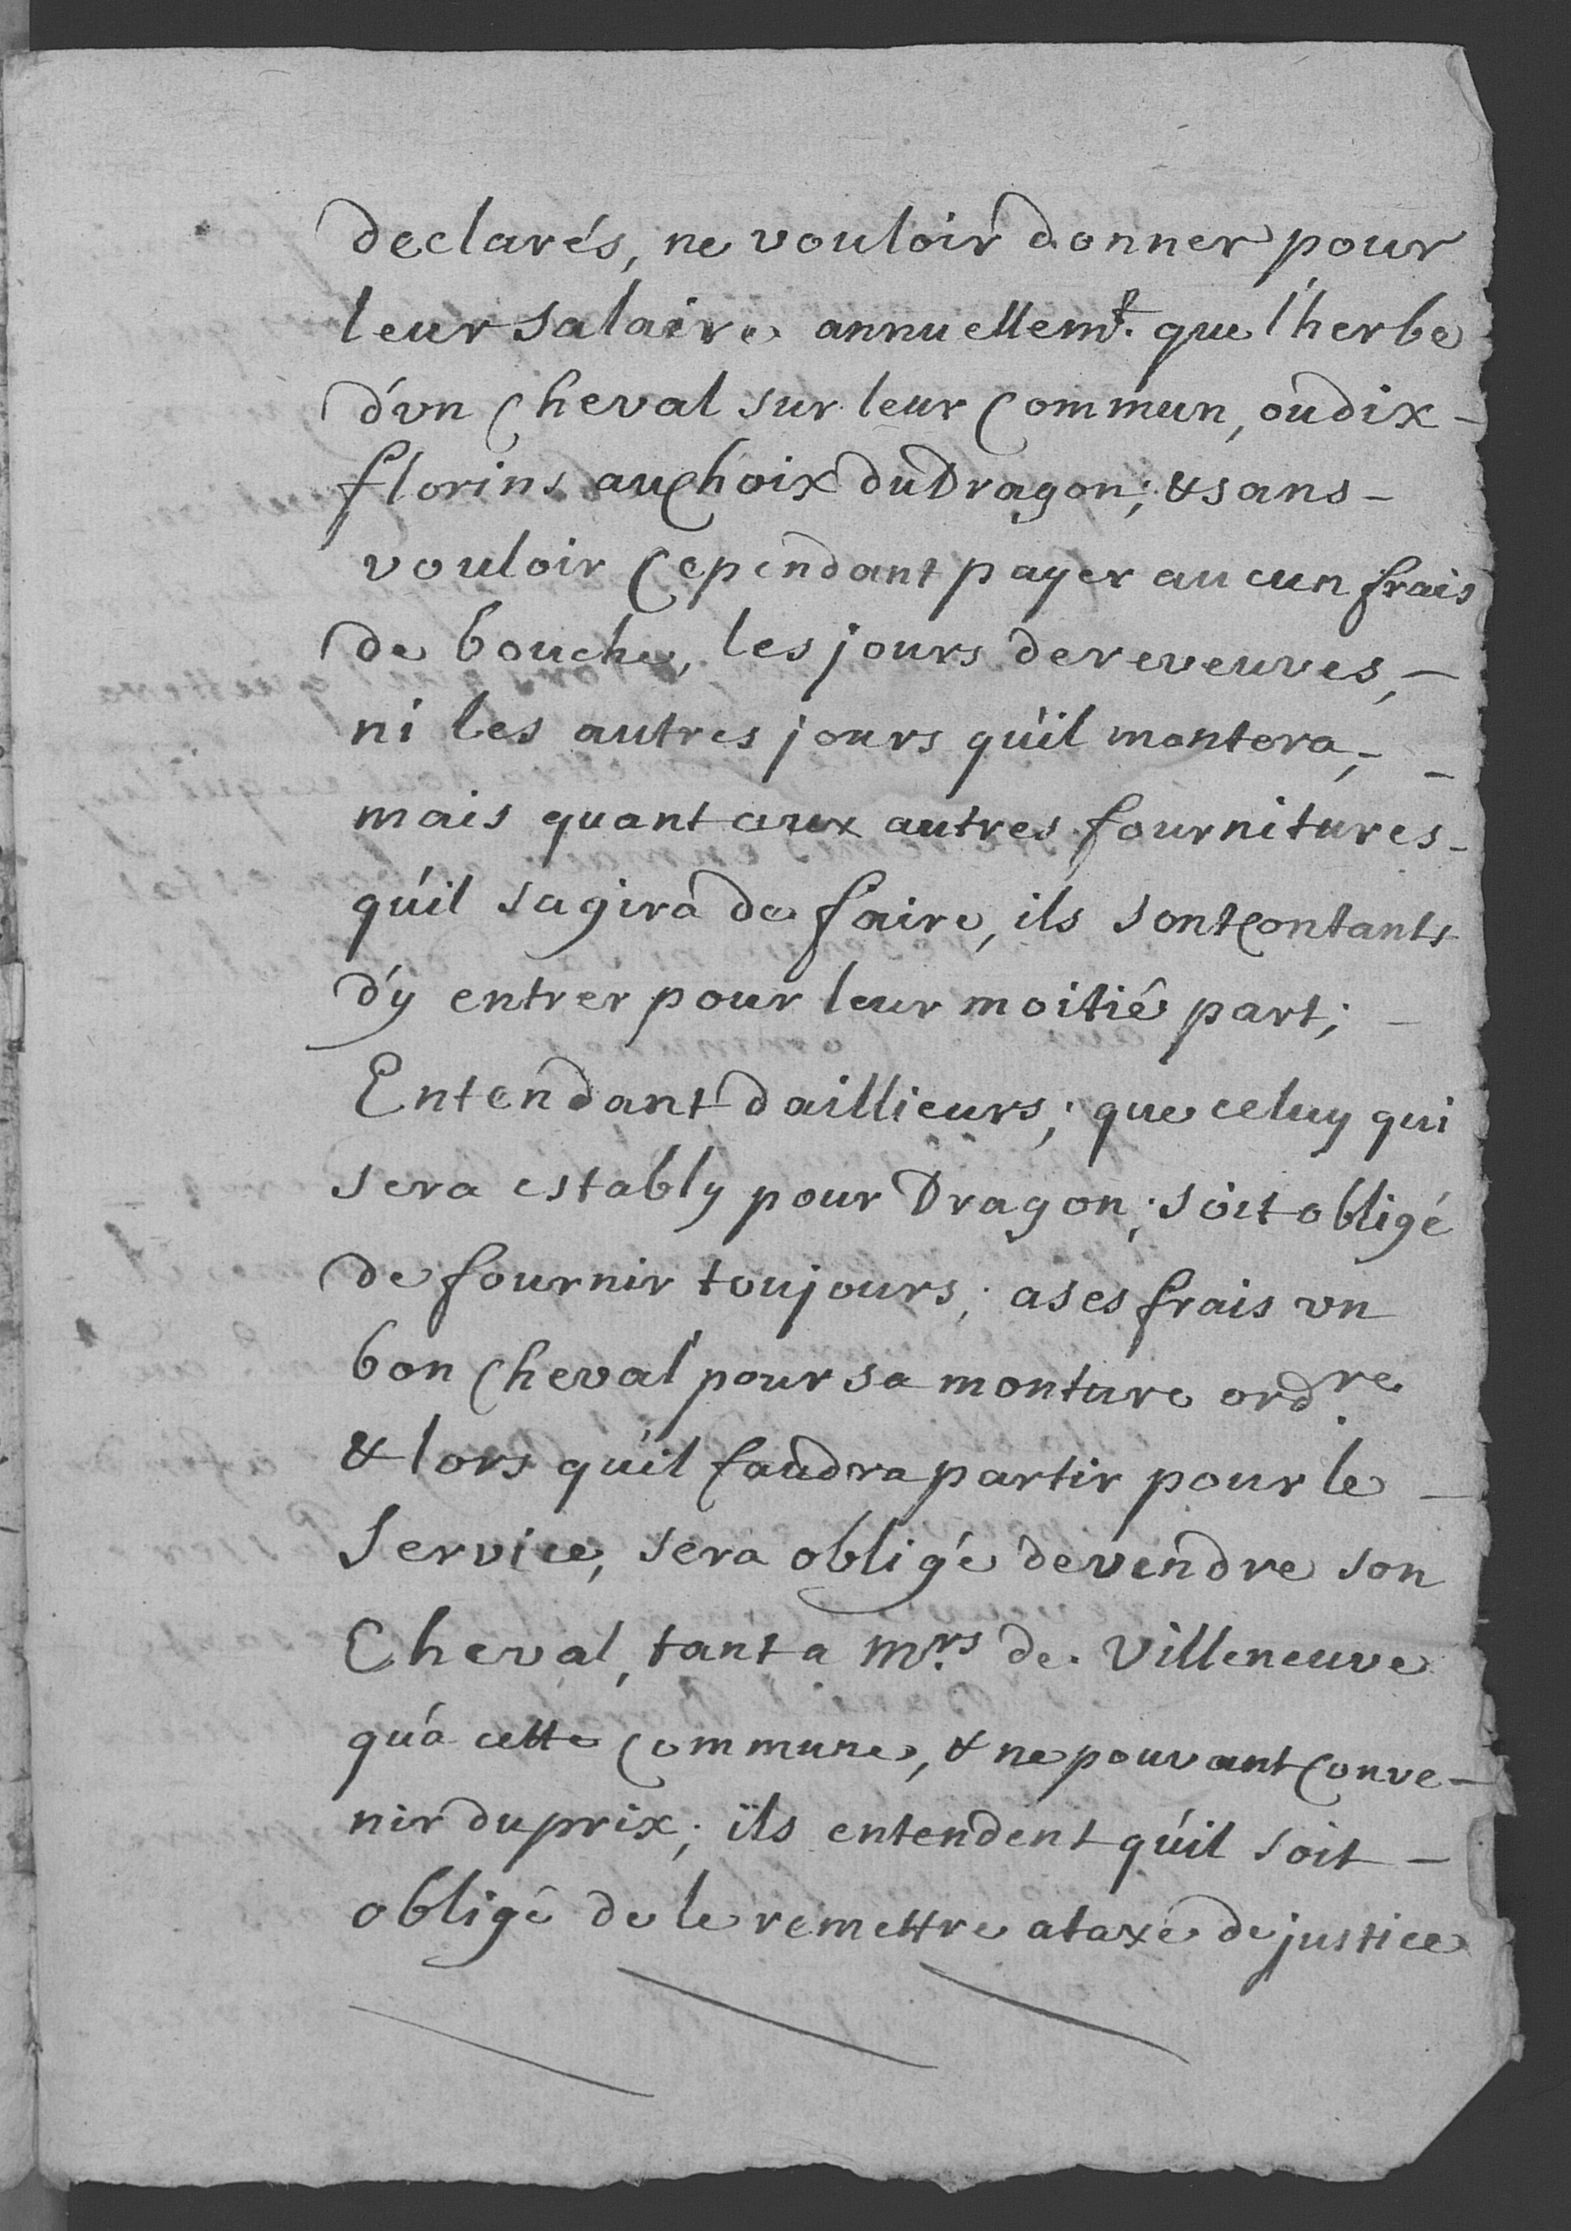 declarés, ne vouloir donner pour
leur salaire annuellemt. que l'herbe
d'vn Cheval sur leur Commun, ou dix -
florins au Choix du Dragon; & sans -
vouloir Cependant payer aucun frais
de bouche, les jours de reveuves, -
ni les autres jours qu'il montera, -
mais quant aux autres fournitures -
qu'il sagira de faire, ils sont Contants
d'y entrer pour leur moitié part; -
Entendant daillieurs; que celuy qui
sera estably pour Dragon; soit obligé
de fournir toujours; a ses frais vn
bon Cheval pour sa monture ordre
& lors qu'il faudra partir pour le -
Service, sera obligé de vendre son
Cheval, tant a Mrs de Villeneuve
qu'à cette Commune, & ne pouvant Conve -
nir du prix; ils entendent qu'il soit -
obligé de le remettre a taxe de justice